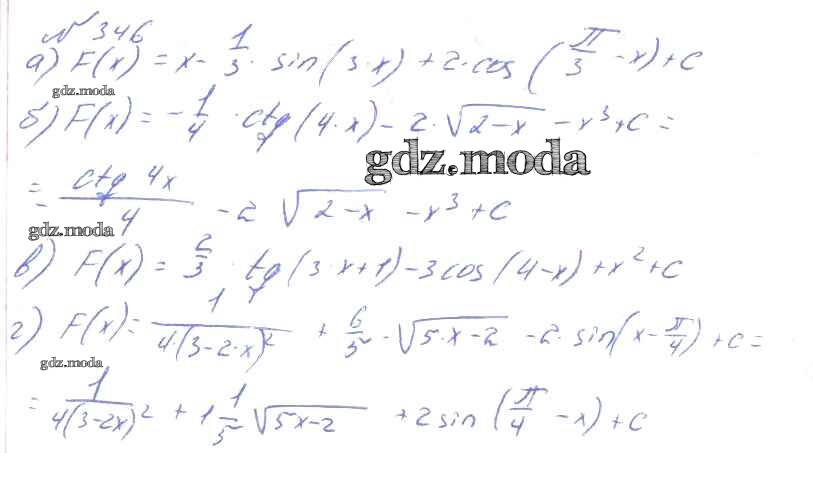 № 346
а) F(x) = x - 1/3 · sin(3·x) + 2·cos(π/3 - x) + C
gdz.moda
б) F(x) = -1/4 · ctg(4·x) - 2·√(2-x) - x³ + C =
gdz.moda
= ctg 4x / 4 - 2 √(2-x) - x³ + C
gdz.moda
в) F(x) = 2/3 · tg(3·x+1) - 3cos(4-x) + x² + C
г) F(x) = 1/(4·(3-2·x)²) + 6/5 · √(5·x-2) - 2·sin(x - π/4) + C =
gdz.moda
= 1/(4(3-2x)²) + 1 1/5 √(5x-2) + 2sin(π/4 - x) + C